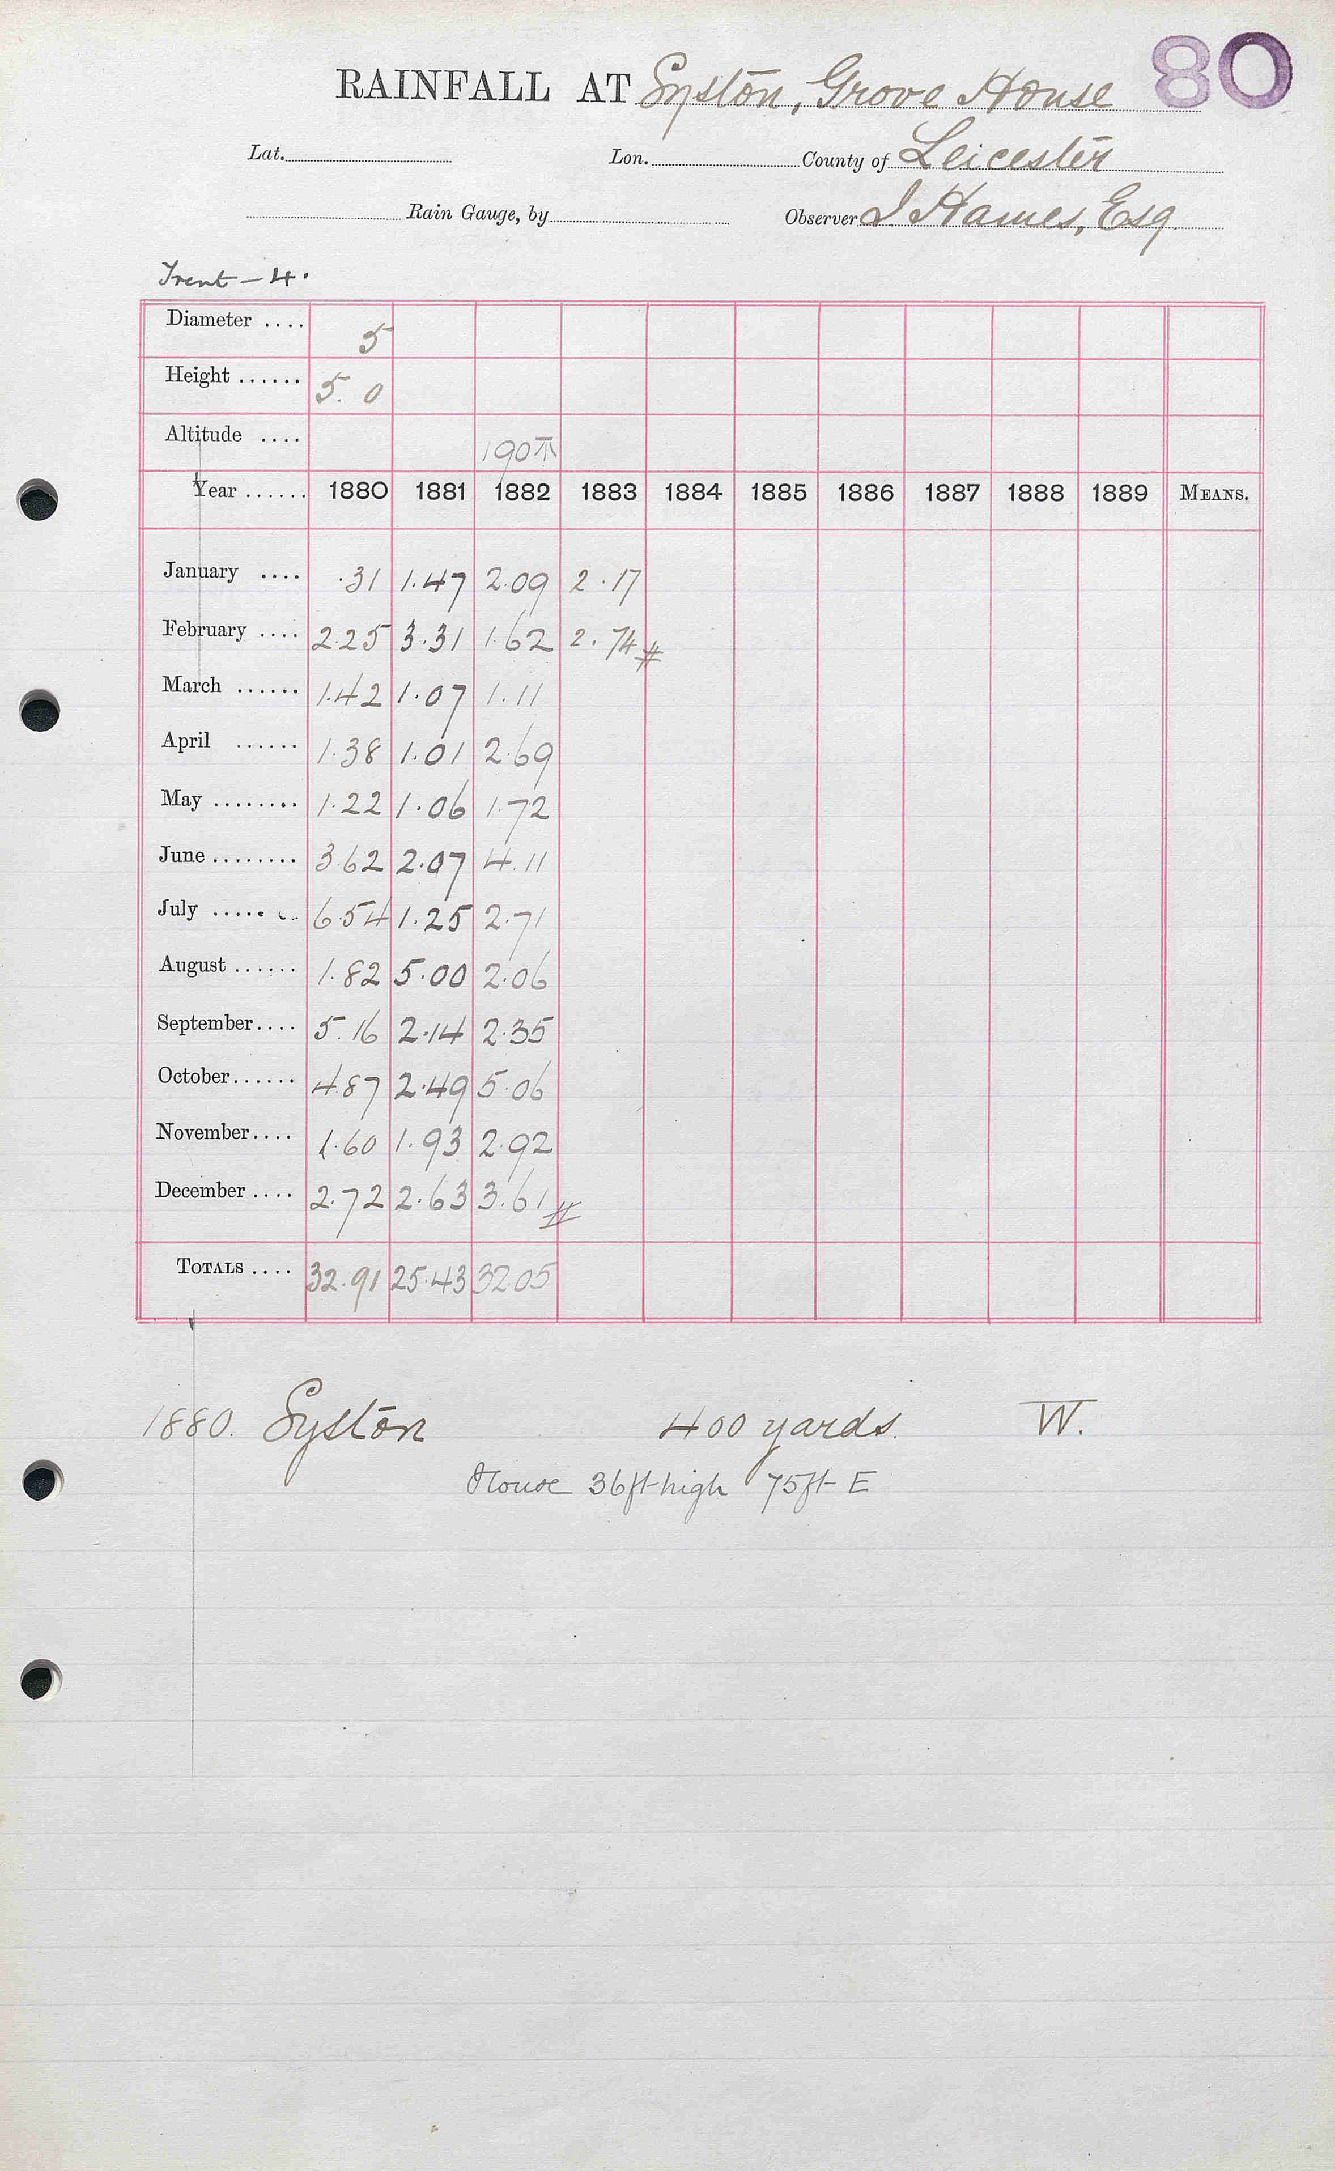 80
RAINFALL AT Syston, Grove House
Lat. Lon. County of Leicester
Rain Gauge, by Observer J Hames, Esq.
Trent - 4.
Diameter .... 5
Height ...... 5. 0
Altitude .... 190
Year ...... 1880 1881 1882 1883 1884 1885 1886 1887 1888 1889 MEANS.
January .... .31 1.47 2.09 2.17
February .... 2.25 3.31 1.62 2.74 #
March ...... 1.42 1.07 1.11
April ...... 1.38 1.01 2.69
May ........ 1.22 1.06 1.72
June ........ 3.62 2.07 4.11
July ...... 6.54 1.25 2.71
August ...... 1.82 5.00 2.06
September.... 5.16 2.14 2.35
October...... 4.87 2.49 5.06
November.... 1.60 1.93 2.92
December .... 2.72 2.63 3.61 #
TOTALS .... 32.91 25.43 32.05
1880. Syston 400 yards. W.
House 36ft high 75ft E